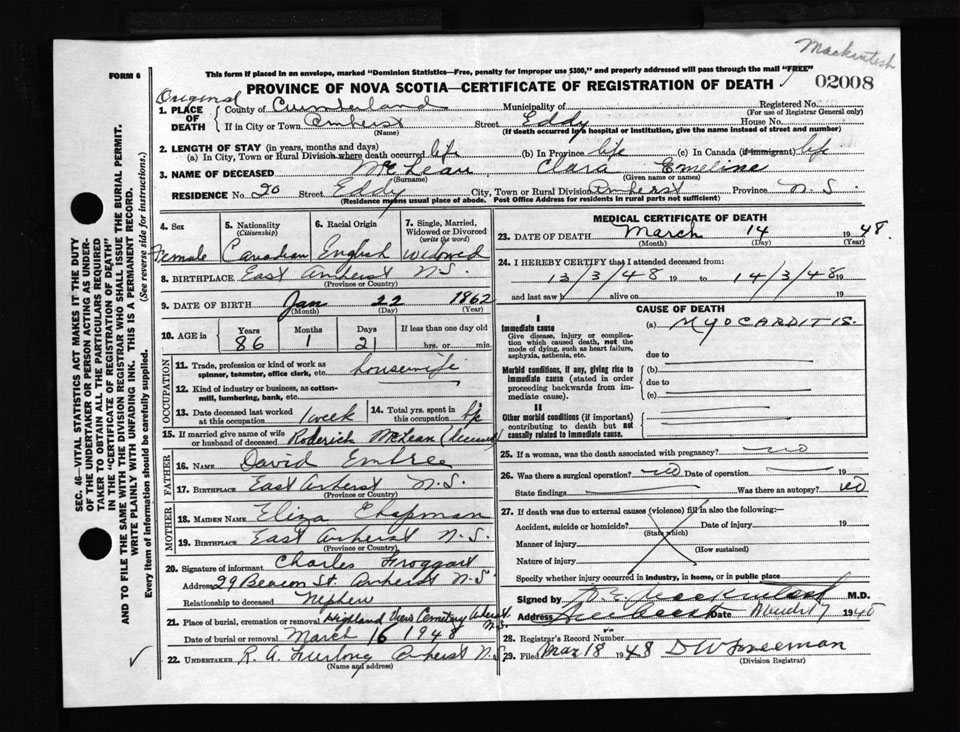 Mackintosh
FORM 6
This form if placed in an envelope, marked "Dominion Statistics—Free, penalty for improper use $300," and properly addressed will pass through the mail "FREE"
PROVINCE OF NOVA SCOTIA—CERTIFICATE OF REGISTRATION OF DEATH
02008
Original
1. PLACE OF DEATH
County of Cumberland Municipality of Registered No.
(For use of Registrar General only)
If in City or Town Amherst Street Eddy House No.
(Name) (If death occurred in a hospital or institution, give the name instead of street and number)
2. LENGTH OF STAY (in years, months and days)
(a) In City, Town or Rural Division where death occurred life (b) In Province life (c) In Canada (if immigrant) life
3. NAME OF DECEASED McLean Clara Emeline
(Surname) (Given name or names)
RESIDENCE No. 20 Street Eddy City, Town or Rural Division Amherst Province N.S.
(Residence means usual place of abode. Post Office Address for residents in rural parts not sufficient)
4. Sex 5. Nationality (Citizenship) 6. Racial Origin 7. Single, Married, Widowed or Divorced (write the word)
Female Canadian English Widowed
8. BIRTHPLACE East Amherst N.S.
(Province or Country)
9. DATE OF BIRTH Jan 22 1862
(Month) (Day) (Year)
10. AGE in Years Months Days If less than one day old
86 1 21 hrs. or min.
OCCUPATION
11. Trade, profession or kind of work as spinner, teamster, office clerk, etc. housewife
12. Kind of industry or business, as cotton-mill, lumbering, bank, etc.
13. Date deceased last worked at this occupation 1 week 14. Total yrs. spent in this occupation life
15. If married give name of wife or husband of deceased Roderick McLean (deceased)
FATHER
16. NAME David Embree
17. BIRTHPLACE East Amherst N.S.
(Province or Country)
MOTHER
18. MAIDEN NAME Eliza Chapman
19. BIRTHPLACE East Amherst N.S.
(Province or Country)
20. Signature of informant Charles Froggatt
Address 29 Beacon St. Amherst N.S
Relationship to deceased Nephew
21. Place of burial, cremation or removal Highland View Cemetery Amherst N.S.
Date of burial or removal March 16 1948
22. UNDERTAKER R. A. Furlong Amherst N.S
(Name and address)
MEDICAL CERTIFICATE OF DEATH
23. DATE OF DEATH March 14 1948.
(Month) (Day) (Year)
24. I HEREBY CERTIFY that I attended deceased from:
13/3/48 19 to 14/3/48 19
and last saw h alive on 19
CAUSE OF DEATH
I
Immediate cause (a) MYOCARDITIS.
Give disease, injury or complication which caused death, not the mode of dying, such as heart failure, asphyxia, asthenia, etc.
due to
Morbid conditions, if any, giving rise to immediate cause (stated in order proceeding backwards from immediate cause).
(b)
due to
(c)
II
Other morbid conditions (if important) contributing to death but not causally related to immediate cause.
25. If a woman, was the death associated with pregnancy? no
26. Was there a surgical operation? no Date of operation 19
State findings Was there an autopsy? no
27. If death was due to external causes (violence) fill in also the following:
Accident, suicide or homicide? Date of injury 19
(State which)
Manner of injury
(How sustained)
Nature of injury
Specify whether injury occurred in industry, in home, or in public place
Signed by Mackintosh M.D.
Address Amherst Date 194
28. Registrar's Record Number
29. Filed Mar 18 1948 D W Freeman
(Division Registrar)
SEC. 46—VITAL STATISTICS ACT MAKES IT THE DUTY
OF THE UNDERTAKER OR PERSON ACTING AS UNDER-
TAKER TO OBTAIN ALL THE PARTICULARS REQUIRED
IN THE "CERTIFICATE OF REGISTRATION OF DEATH"
AND TO FILE THE SAME WITH THE DIVISION REGISTRAR WHO SHALL ISSUE THE BURIAL PERMIT.
WRITE PLAINLY WITH UNFADING INK. THIS IS A PERMANENT RECORD.
Every item of information should be carefully supplied. (See reverse side for instructions.)